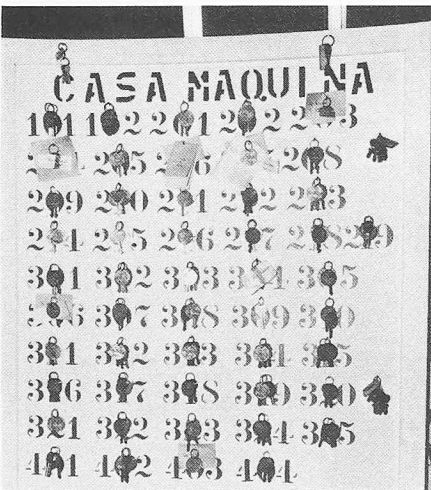 CASA MAQUINA
101 102 201 202 203
204 205 206 208
209 210 211 212 213
214 215 216 217 218 219
301 302 303 304 305
306 307 308 309 310
311 312 313 314 315
316 317 318 319 320
321 322 323 324 325
401 402 403 404